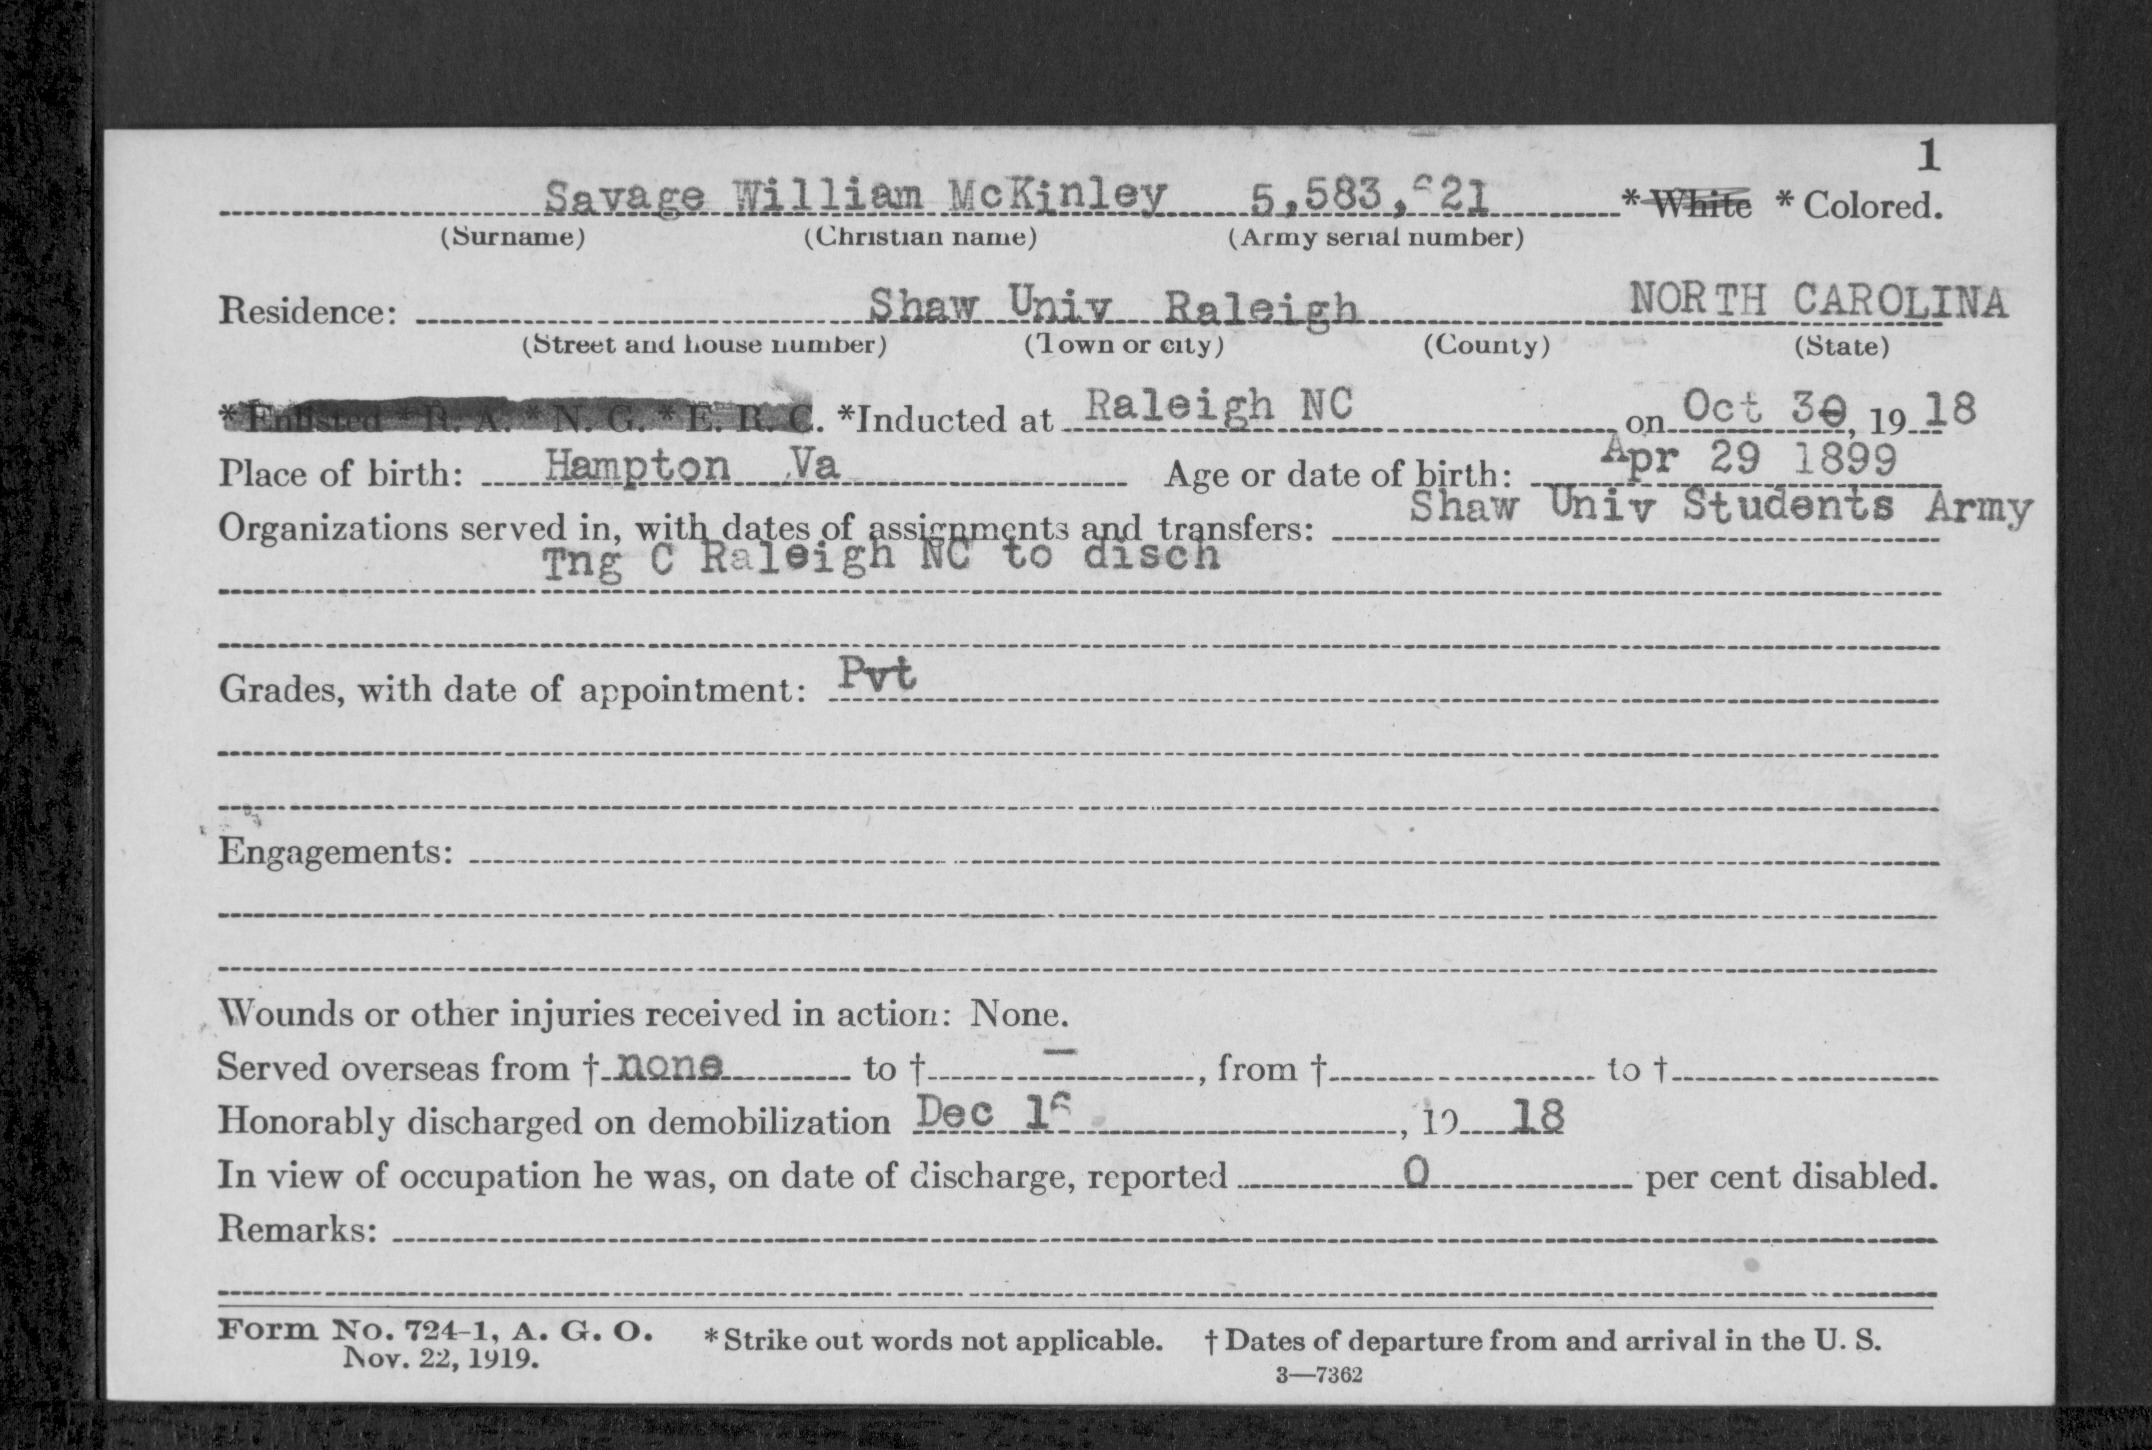 1
Savage William McKinley 5,583,621 * White * Colored.
(Surname) (Christian name) (Army serial number)
Residence: Shaw Univ Raleigh NORTH CAROLINA
(Street and house number) (Town or city) (County) (State)
* Enlisted * R. A. * N. G. * E. R. C. *Inducted at Raleigh NC on Oct 30, 19 18
Place of birth: Hampton Va Age or date of birth: Apr 29 1899
Organizations served in, with dates of assignments and transfers: Shaw Univ Students Army
Tng C Raleigh NC to disch
Grades, with date of appointment: Pvt
Engagements:
Wounds or other injuries received in action: None.
Served overseas from † none to † —, from † to †
Honorably discharged on demobilization Dec 16, 19 18
In view of occupation he was, on date of discharge, reported 0 per cent disabled.
Remarks:
Form No. 724-1, A. G. O. * Strike out words not applicable. † Dates of departure from and arrival in the U. S.
Nov. 22, 1919.
3—7362